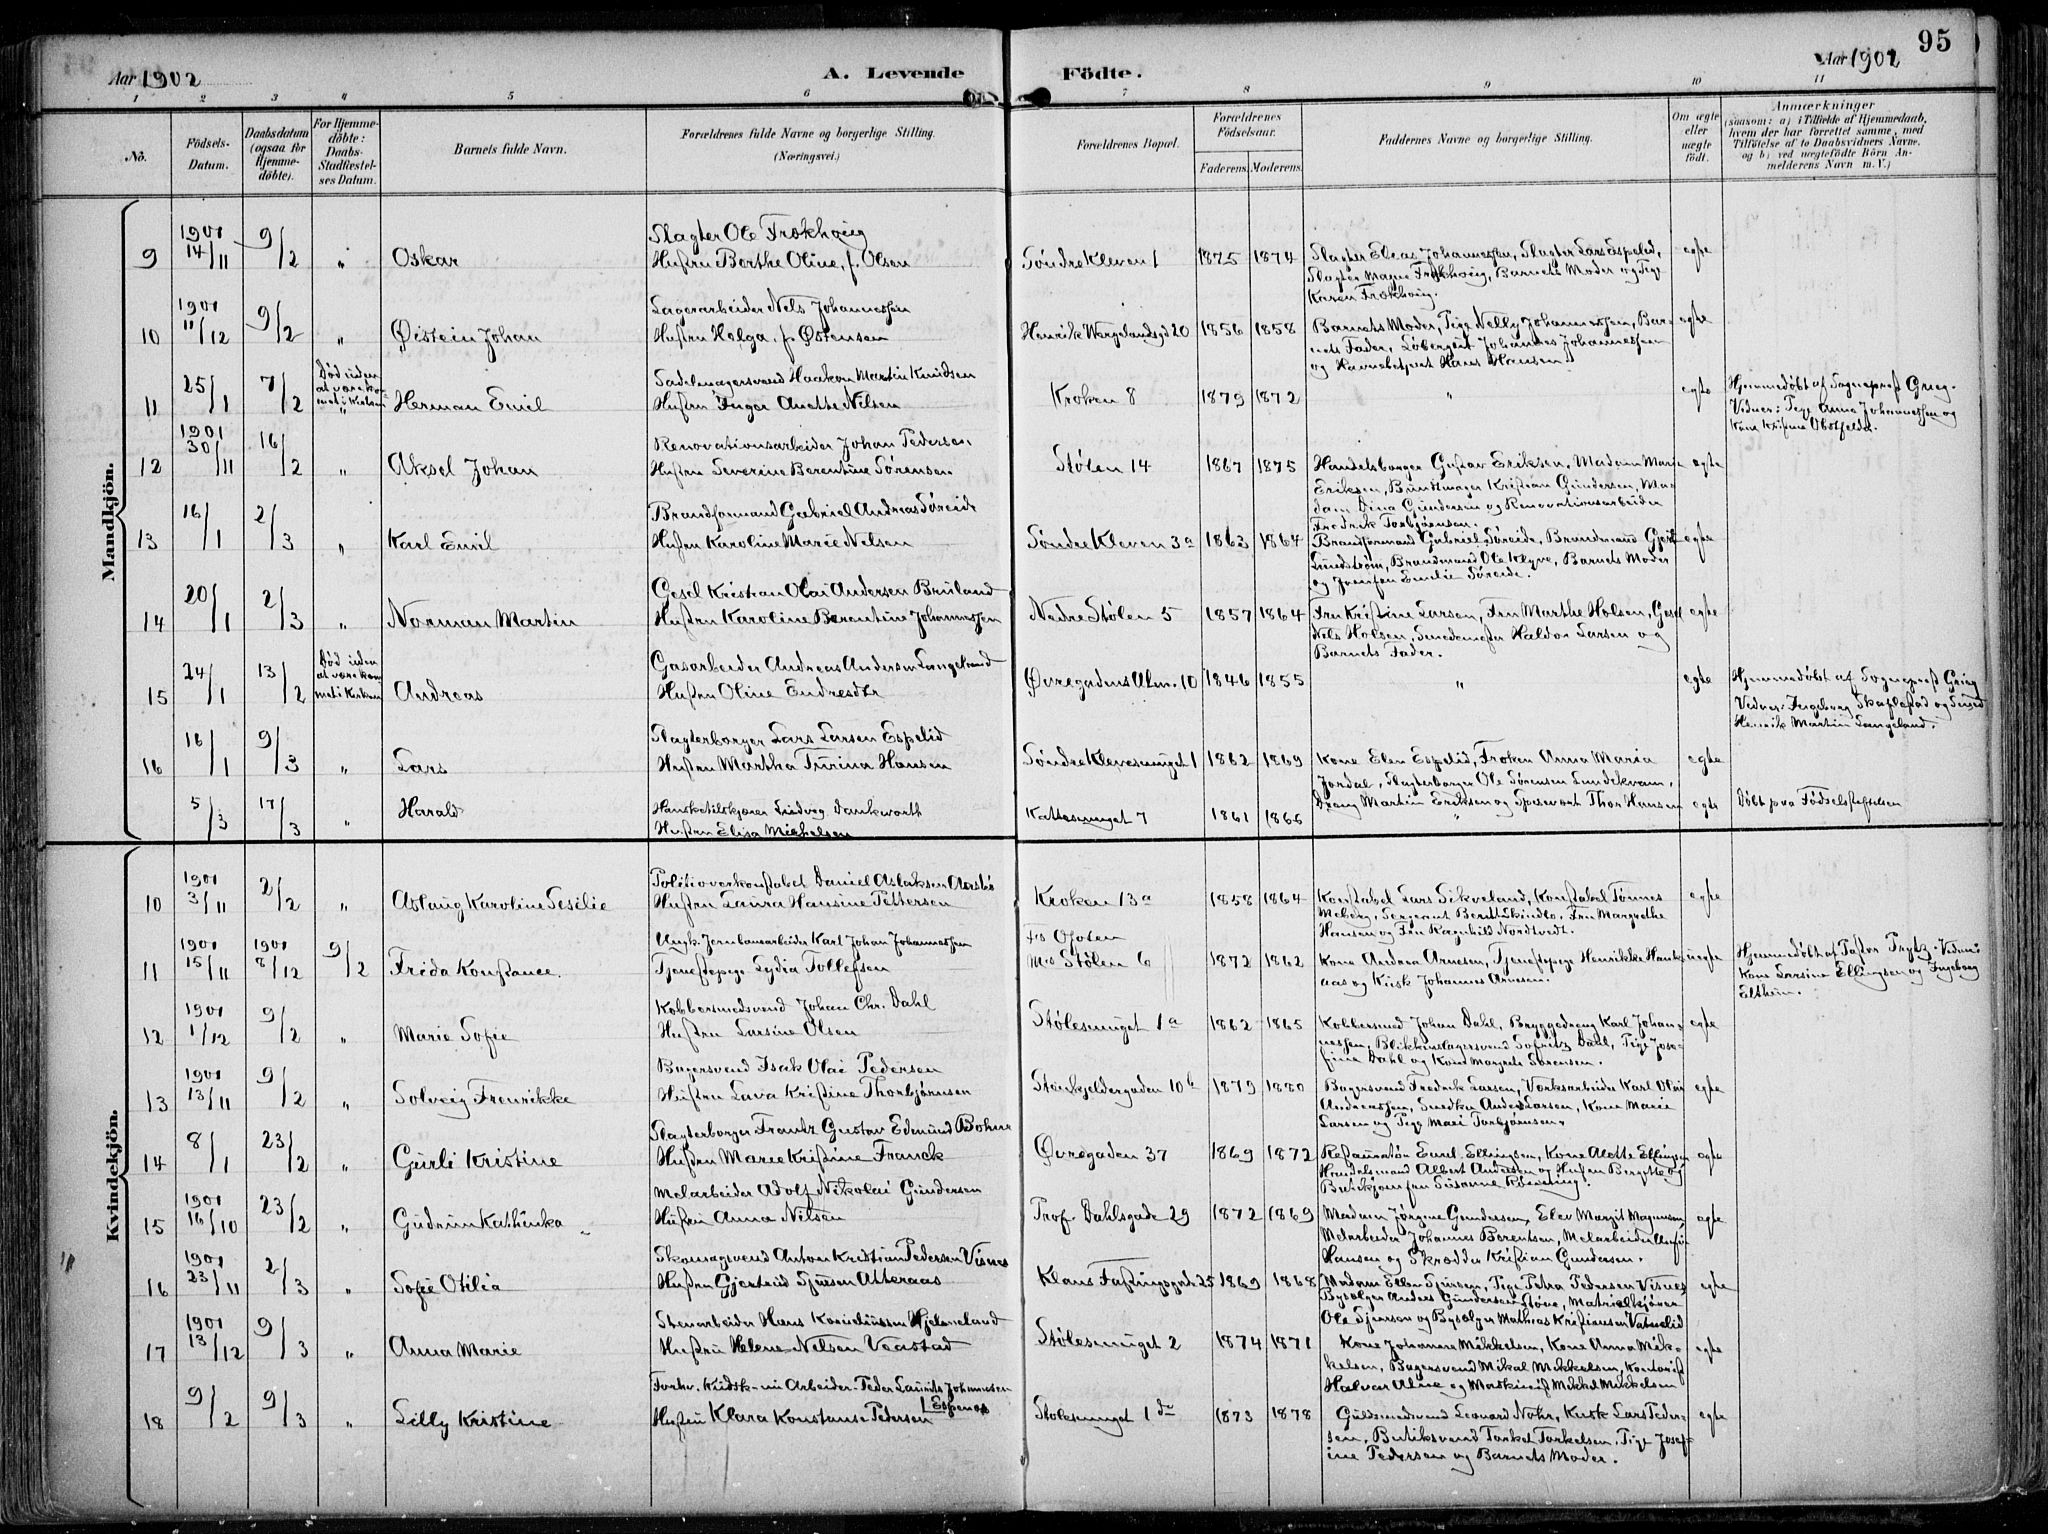 95
Aar 1902
A. Levende
Födte.
Aar 1902
1 2 3 4 5 6 7 8 9 10 11
No.
Födsels-
Datum.
Daabsdatum
(ogsaa for
Hjemme-
döbte).
For Hjemme-
döbte:
Daabs-
Stadfæstel-
ses Datum.
Barnets fulde Navn.
Forældrenes fulde Navne og borgerlige Stilling.
(Næringsvei.)
Forældrenes Bopæl.
Forældrenes
Födselsaar.
Faderens.
Moderens.
Faddernes Navne og borgerlige Stilling.
Om ægte
eller
uægte
födt.
Anmærkninger
(saasom: a) i Tilfælde af Hjemmedaab,
hvem der har forrettet samme, med
Tilföielse af to Daabsvidners Navne,
og b) ved uægtefödte Börn An-
melderens Navn m.V.)
Mandkjön.
9 1901 14/11 9/2 " Oskar
Slagter Ole Trokhoig
Hustru Berthe Oline, f. Olsen
Søndre Kleven 1 1875 1874
Slagter Elias Johannessen, Slagter Lars Espelid,
Slagter Magne Trokhoig, Barnets Moder og Pige
Karen Trokhoig.
egte
10 1901 11/12 9/2 " Øistein Johan
Lagerarbeider Nels Johannessen
Hustru Helga, f. Østensen
Henrik Wergelandsgd 20 1856 1858
Barnets Moder, Pige Nelly Johannessen, Bar-
nets Fader, Løbergut Johannes Johannessen
og Havnebetjent Hans Hansen.
egte
11 25/1 7/2
Død uden
at være kom
met i Kirken
Herman Emil
Sadelmagersvend Haakon Martin Knudsen
Hustru Inger Anette Nilsen
Kroken 8 1879 1872 " egte
Hjemmedøbt af Sogneprest Grieg.
Vidner: Pige Anna Johannessen og
Kone Kristine Obstfelder.
12 1901 30/11 16/2 " Aksel Johan
Renovationsarbeider Johan Pedersen
Hustru Severine Berentine Sørensen
Stølen 14 1867 1875
Handelsborger Gustav Eriksen, Madam Marie
Eriksen, Buntmager Kristian Gundersen, Ma-
dam Dina Gundersen og Renovationsarbeider
Fredrik Torbjørnsen.
egte
13 16/1 2/3 " Karl Emil
Brandformand Gabriel Andreas Søreide
Hustru Karoline Marie Nelsen
Søndre Kleven 3a 1863 1864
Brandformand Gabriel Søreide, Brandmand Gjert
Lundstrøm, Brandmand Ole Klyve, Barnets Moder
og Jomfru Emilie Søreide.
egte
14 20/1 2/3 " Norman Martin
Gesel Kristian Olai Andersen Bruland
Hustru Karoline Berentine Johannessen
Nedre Stølen 5 1857 1864
Fru Kristine Larsen, Fru Marthe Holsen, Gesel
Nels Holsen, Smedemester Haldor Larsen og
Barnets Fader.
egte
15 24/1 13/2
Død uden
at være kom
met i Kirken
Andreas
Gasarbeider Andreas Andersen Langeland
Hustru Oline Endresdtr
Øvregadens Alm. 10 1846 1855 " egte
Hjemmedøbt af Sogneprest Grieg
Vidner: Ingeborg Skaflestad og Smed
Henrik Martin Langeland.
16 16/1 9/3 " Lars
Slagterborger Lars Larsen Espelid
Hustru Martha Turina Hansen
Søndre Klevesmuget 1 1862 1869
Kone Elen Espelid, Frøken Anna Maria
Jordal, Slagterborger Ole Sørensen Lundekvam,
Dreng Martin Eriksen og Thor Hansen
egte
5/3 17/3 " Harald
Hansketilskjærer Ludvig Dankwarth
Hustru Elisa Michelsen
Kattesmuget 7 1861 1866 " egte
Døbt paa Fødselsstiftelsen
Kvindekjön.
10 1901 3/11 2/2 " Aslaug Karoline Sesilie
Politioverkonstabel Daniel Aslaksen Aarstø
Hustru Laura Hansine Pettersen
Kroken 13a 1858 1864
Konstabel Lars Sikveland, Konstabel Tønnes
Meberg, Sergeant Berdt Skindlo, Fru Margrethe
Hansen og Fru Ragnhild Nordtvedt.
egte
11 1901 15/11 1901 8/12 9/2 Frida Konstance.
Ungk. Jernbanearbeider Karl Johan Johannessen
Tjenestepige Lydia Tollefsen
Fs Ofoten
Ms Stølen 6 1872 1862
Kone Andrea Arnesen, Tjenestepige Henrikke Hauk-
aas og Kusk Johannes Arnesen.
uegte
Hjemmedøbt af Pastor Prytz. Vidner:
Kone Larsine Ellingsen og Ingeborg
Eltheim.
12 1901 1/12 9/2 " Marie Sofie
Kobbersmedsvend Johan Chr. Dahl
Hustru Larsine Olsen
Stølesmuget 1a 1862 1865
Kobbersmed Johan Dahl, Bryggedreng Karl Johan-
nessen, Blikkenslagersvend Sofritz Dahl, Pige Jose-
fine Dahl og Kone Margrete Sørensen.
egte
13 1901 13/11 9/2 " Solveig Fredrikke
Bagersvend Isak Olai Pedersen
Hustru Lava Kristine Thorbjørnsen
Steinkjeldergaden 10b 1879 1880
Bagersvend Fredrik Larsen, Værksarbeider Karl Olai
Andreassen, Snedker Anders Larsen, Kone Marie
Larsen og Pige Mari Torbjørnsen.
egte
14 8/1 23/2 " Gurli Kristine
Slagterborger Frantz Gustav Edmund Bohne
Hustru Marie Kristine Franck
Øvregaden 37 1869 1872
Restauratør Emil Ellingsen, Kone Alette Ellingsen
Handelsmand Albert Andersen og Hustru Bergitte og
Butikjomfru Susanne
egte
15 1901 16/10 23/2 " Gudrun Kathinka
Melarbeider Adolf Nikolai Gundersen
Hustru Anna Nilsen
Prof. Dahlsgade 29 1872 1869
Madam Jørgine Gundersen, Elev Margit Magnussen
Melarbeider Johannes Berentsen, Melarbeider
Hansen og Skrædder Kristian Gundersen.
egte
16 1901 23/11 2/3 " Sofie Otilia
Skomagsvend Anton Kristian Pedersen Visnes
Hustru Gjertrud Sjursen Atteraas
Klaus Fastingsgade 25 1869 1868
Madam Ellen Sjursen, Pige Petra Pedersen Visnes
Bysælger Anders Gundersen Støve, Matrielkjører
Ole Sjursen og Bysælger Mathias Kristiansen Vatnelid
egte
17 1901 13/12 9/3 " Anna Marie
Stenarbeider Hans Kornelinssen Hjelmeland
Hustru Helene Nelsen Veastad
Stølesmuget 2 1874 1871
Kone Johanne Mikkelsen, Kone Anna Mik-
kelsen, Bagersvend Mikal Mikkelsen, Kontorist
Halvar Alne og Maskinist Mikkel Mikkelsen
egte
18 9/2 9/3 " Lilly Kristine
Forhv. Arbeider Peder Laurits Johannesen
Espenæs
Hustru Klara Konstanse Pedersen
Stølesmuget 1 1873 1878
Guldsmedsvend Leonard Nohr, Kusk Lars Peder-
sen, Butiksvend Torkel Torkelsen, Pige Josef-
ine Pedersen og Barnets Moder.
egte